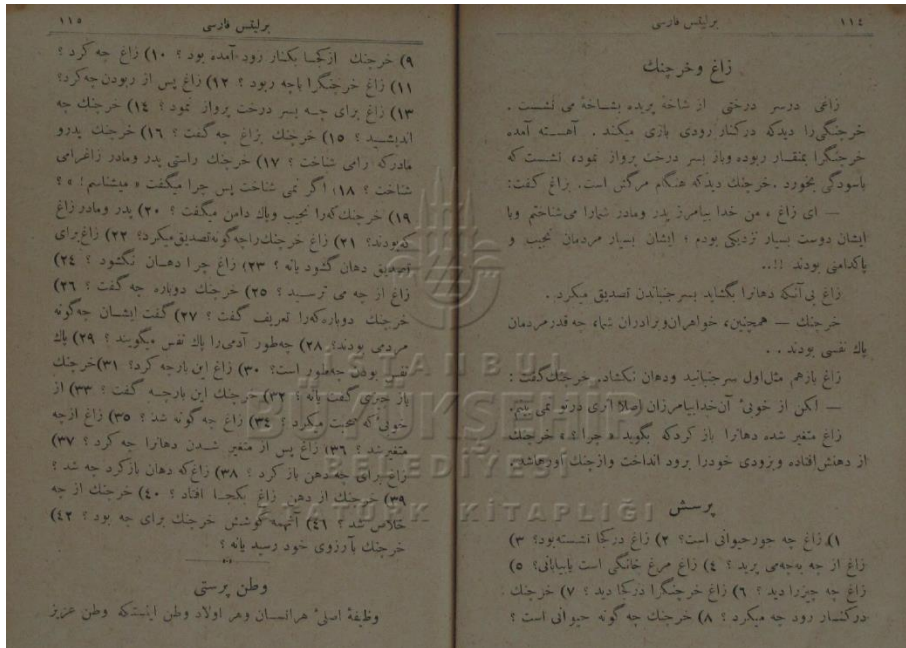 ١١٤
برليتس فارسى
زاغ وخرچنك
زاغى درسر درختى از شاخهٔ پريده بشاخهٔ مى نشست .
خرچنگى را ديدكه دركنار رودى بازى ميكند . آهسته آمده
خرچنگرا بمنقار ربوده وباز بسر درخت پرواز نمود، نشست كه
بآسودگى بخورد . خرچنك ديدكه هنگام مرگش است. بزاغ گفت:
— اى زاغ ، من خدا بيامرز پدر ومادر شمارا مى شناختم وبا
ايشان دوست بسيار نزديكى بودم ؛ ايشان بسيار مردمان نجيب و
پاكدامنى بودند !!..
زاغ بى آنكه دهانرا بگشايد بسرجنباندن تصديق ميكرد .
خرچنك — همچنين، خواهران وبرادران شما، چه قدر مردمان
پاك نفسى بودند . .
زاغ بازهم مثل اول سرجنبانيد ودهان نكشاد. خرچنك گفت :
— لكن از خوبىٔ آن خدابيامرزان اصلا اثرى درتو نمى يابم.
زاغ متغير شده دهانرا باز كردكه بگويد « چرا ؟ » خرچنك
از دهنش افتاده وبزودى خودرا برود انداخت وازچنك اورهاشد.
پرسش
١) زاغ چه جور حيوانى است؟ ٢) زاغ دركجا نشسته بود؟ ٣)
زاغ از چه بچه مى پريد ؟ ٤) زاغ مرغ خانگى است يابيابانى؟ ٥)
زاغ چه چيزرا ديد ؟ ٦) زاغ خرچنگرا دركجا ديد ؟ ٧) خرچنك
دركنار رود چه ميكرد ؟ ٨) خرچنك چه گونه حيوانى است ؟
برليتس فارسى
١١٥
٩) خرچنك ازكجا بكنار رود آمده بود ؟ ١٠) زاغ چه كرد ؟
١١) زاغ خرچنگرا باچه ربود ؟ ١٢) زاغ پس از ربودن چه كرد؟
١٣) زاغ براى چه بسر درخت پرواز نمود ؟ ١٤) خرچنك چه
انديشيد ؟ ١٥) خرچنك بزاغ چه گفت ؟ ١٦) خرچنك پدرو
مادركه را مى شناخت ؟ ١٧) خرچنك راستى پدر ومادر زاغرا مى
شناخت ؟ ١٨) اگر نمى شناخت پس چرا ميگفت « ميشناسم! » ؟
١٩) خرچنك كه را نجيب وپاك دامن ميگفت ؟ ٢٠) پدر ومادر زاغ
كه بودند؟ ٢١) زاغ خرچنك راچه گونه تصديق ميكرد؟ ٢٢) زاغ براى
تصديق دهان گشود يانه ؟ ٢٣) زاغ چرا دهان نگشود ؟ ٢٤)
زاغ از چه مى ترسيد ؟ ٢٥) خرچنك دوباره چه گفت ؟ ٢٦)
خرچنك دوباره كه را تعريف گفت ؟ ٢٧) گفت ايشان چه گونه
مردمى بودند؟ ٢٨) چه طور آدمى را پاك نفس ميگويند ؟ ٢٩) پاك
نفس بودن چه طور است؟ ٣٠) زاغ اين بارچه كرد؟ ٣١) خرچنك
باز چيزى گفت يانه ؟ ٣٢) خرچنك اين بارچه گفت ؟ ٣٣) از
خوبى كه صحبت ميكرد ؟ ٣٤) زاغ چه گونه شد ؟ ٣٥) زاغ ازچه
متغير شد ؟ ٣٦) زاغ پس از متغير شدن دهانرا چه كرد ؟ ٣٧)
زاغ براى چه دهن باز كرد ؟ ٣٨) زاغ كه دهان بازكرد چه شد ؟
٣٩) خرچنك از دهن زاغ بكجا افتاد ؟ ٤٠) خرچنك از چه
خلاص شد ؟ ٤١) آنهمه كوشش خرچنك براى چه بود ؟ ٤٢)
خرچنك بآرزوى خود رسيد يانه ؟
وطن پرستى
وظيفهٔ اصلىٔ هرانسان وهر اولاد وطن اينستكه وطن عزيز
İSTANBUL
BÜYÜKŞEHİR
BELEDİYESİ
ATATÜRK KİTAPLIĞI